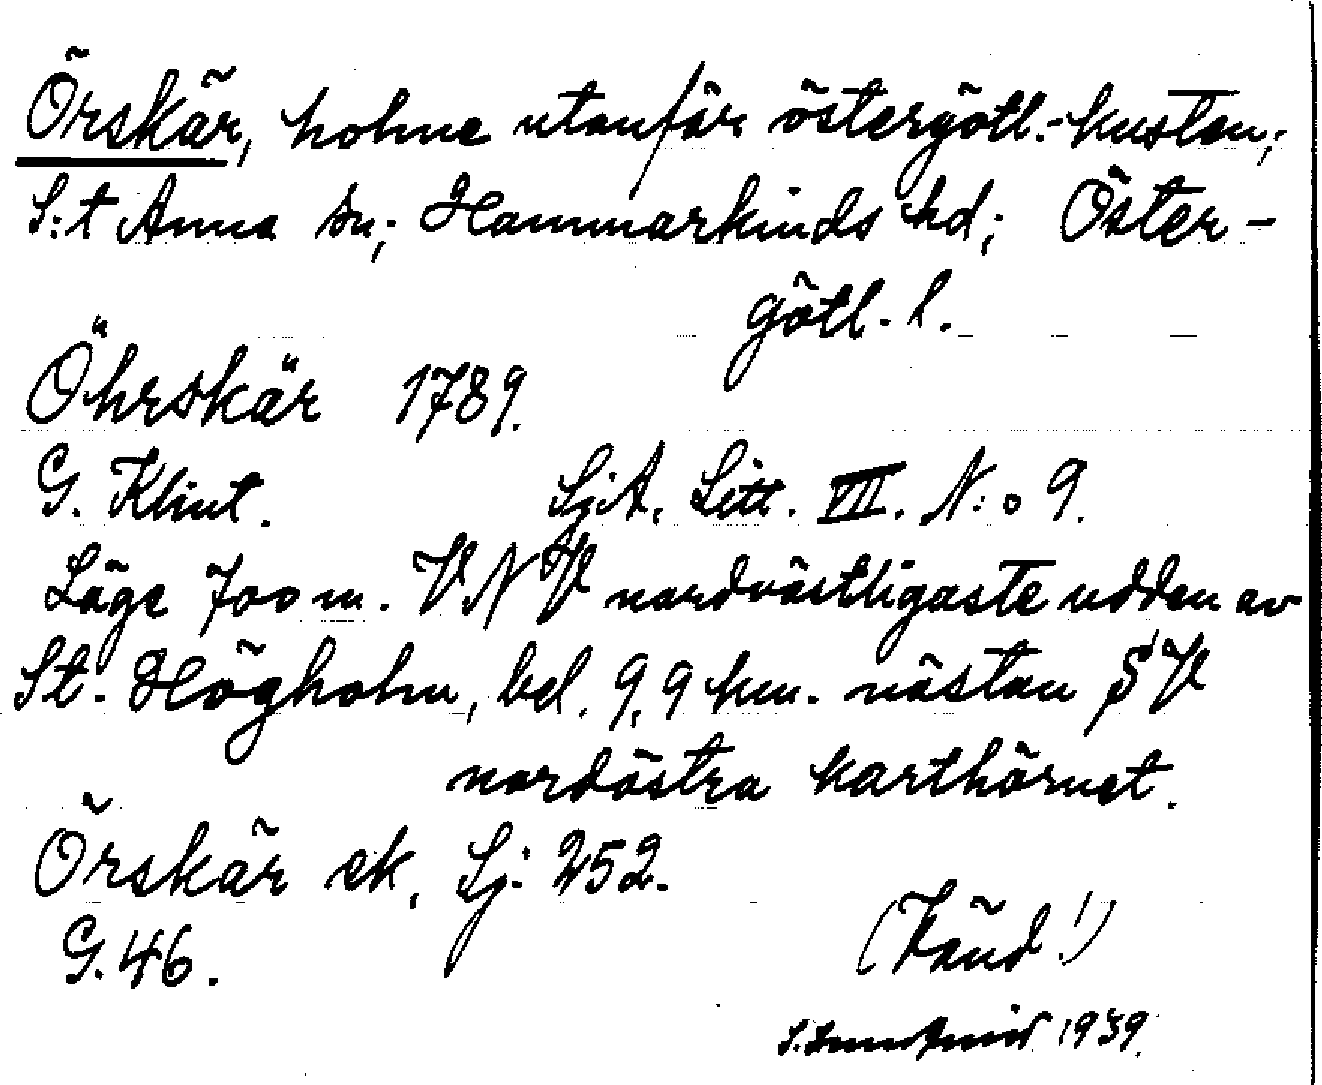 Örskär, holme utanför östergötl.-kusten;
S:t Anna sn; Hammarkinds hd; Öster-
götl. l.
Öhrskär 1789.
G. Klint. SjA. Litt. VII. N:o 9.
Läge 700 m. VNV nordvästligaste udden av
St. Högholm, bel. 9,9 km. nästan SV
nordöstra karthörnet.
Örskär ek. Sj: 252.
G. 46.
(Vänd!)
S. 1939.